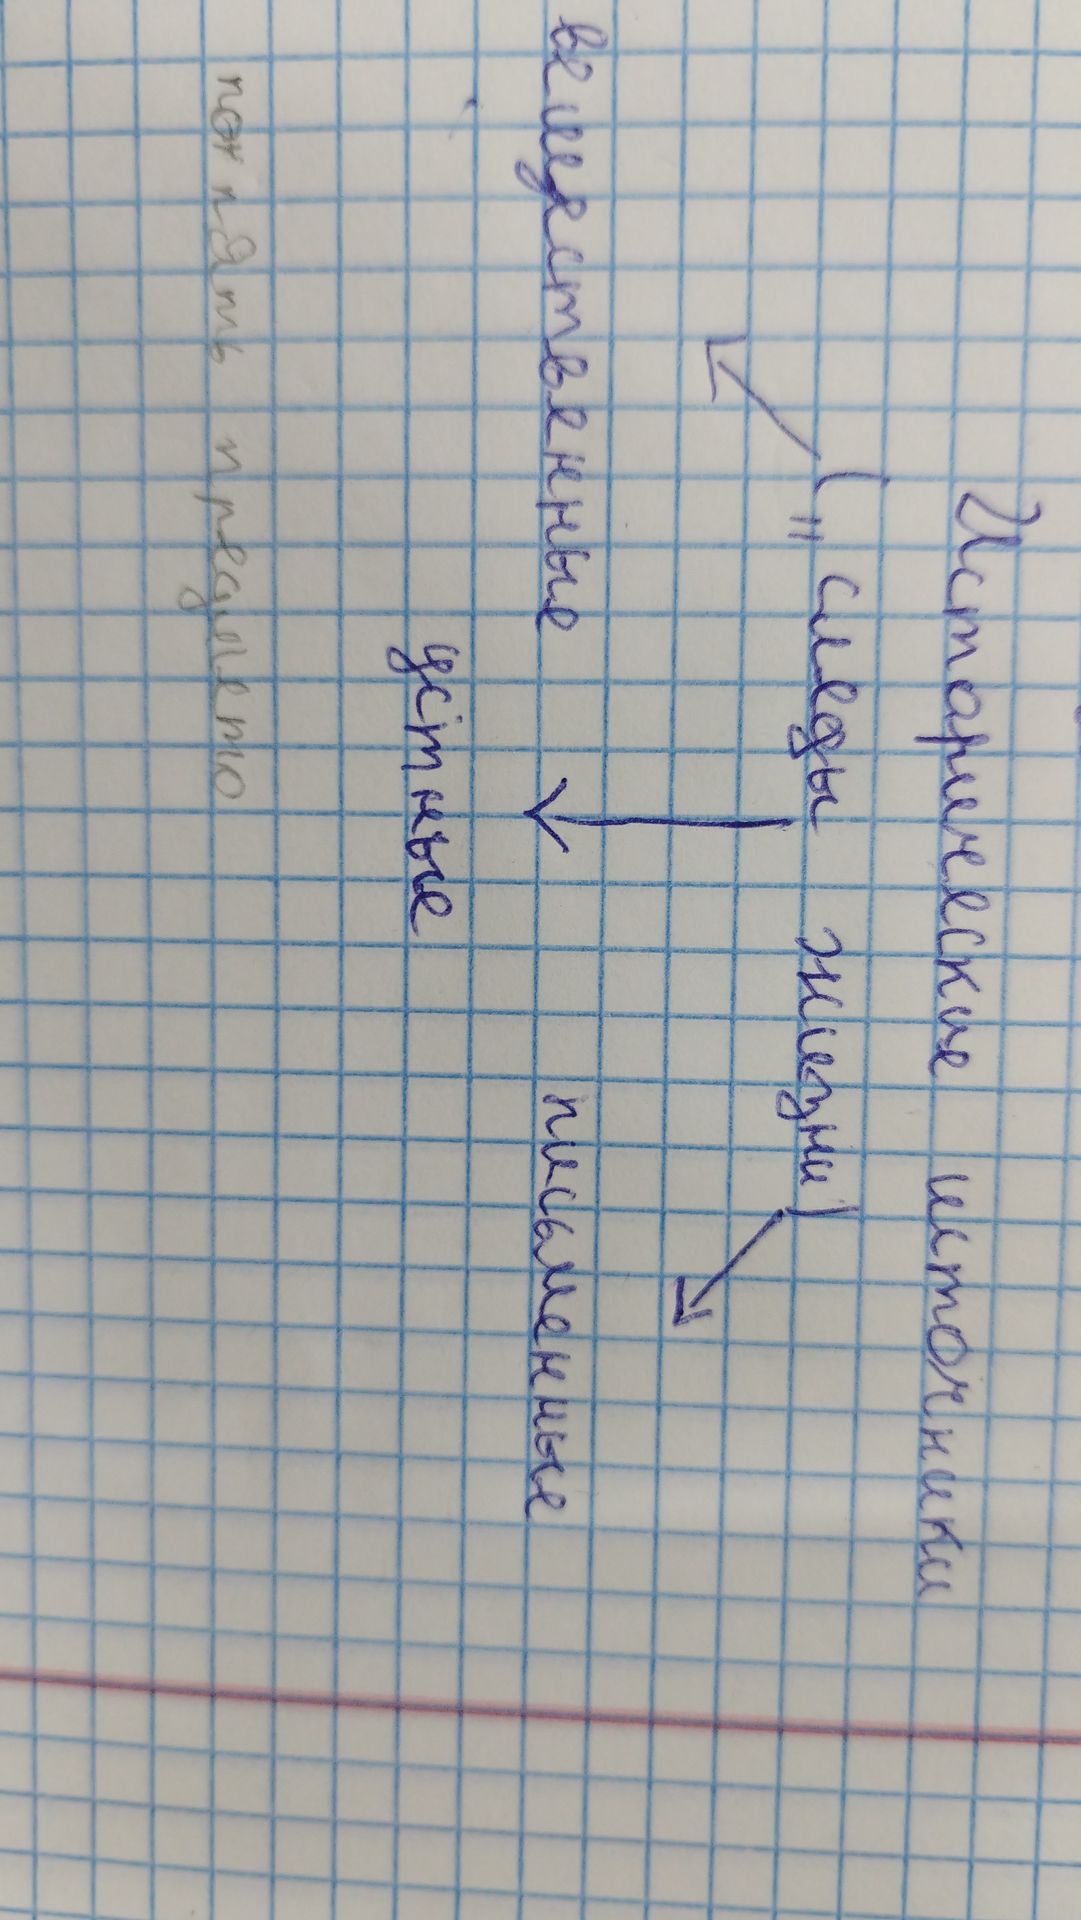 Исторические источники
("следы жизни)
вещественные письменные
устные
по пять предмето